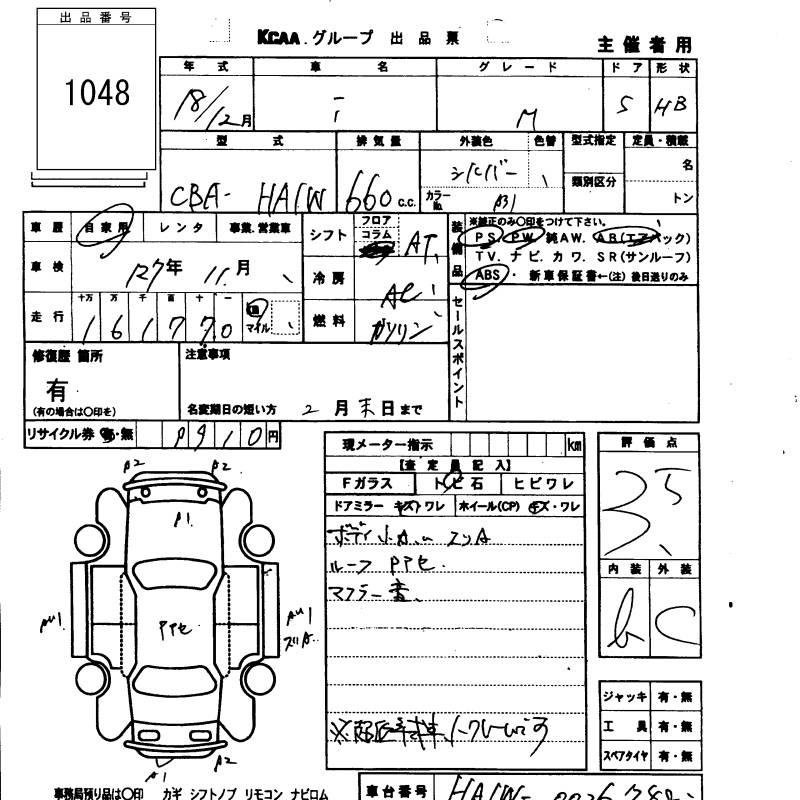 出品番号
1048
KCAA グループ 出品票
主催者用
年式 車名 グレード ドア 形状
18/12月 i M 5 HB
型式 排気量 外装色 色替 型式指定 定員・積載
CBA- HA1W 660 c.c. シルバー 類別区分 名
カラーNo. トン
車歴 自家用 レンタ 事業.営業車
シフト フロア コラム AT
装備品 ※純正のみ○印をつけて下さい。
PS. PW. 純AW. AB(エアバック)
TV. ナビ. カワ. SR(サンルーフ)
ABS・ 新車保証書←(注) 後日送りのみ
車検 127年 11月
冷房 AC
走行 十万 万 千 百 十 一
161770 km マイル
燃料 ガソリン
セールスポイント
修復歴 箇所
有
(有の場合は○印を)
注意事項
名変期日の短い方 2月末日まで
リサイクル券 有・無 円
現メーター指示 km
【査定員記入】
Fガラス トビ石 ヒビワレ
ドアミラー キズ・ワレ ホイール(CP) キズ・ワレ
ルーフ PTセ.
評価点
3.5
内装 外装
b C
A2 A2
A1.
PPセ
A1 A2
ジャッキ 有・無
工具 有・無
スペアタイヤ 有・無
事務局預り品は○印 カギ シフトノブ リモコン ナビロム
車台番号 HA1W-